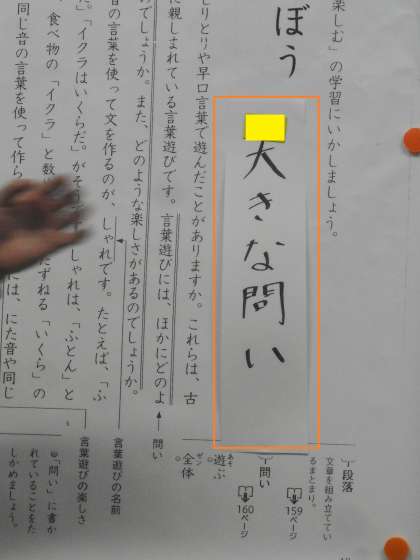 楽しむ」の学習にいかしましょう。
ぼう
大きな問い
しりとりや早口言葉で遊んだことがありますか。これらは、古
に親しまれている言葉遊びです。言葉遊びには、ほかにどのよ
のでしょうか。また、どのような楽しさがあるのでしょうか。
音の言葉を使って文を作るのが、しゃれです。たとえば、「ふ
だ。」「イクラはいくらだ。」が
しゃれは、「ふとん」と
食べ物の「イクラ」と数
ずねる「いくら」の
同じ音の言葉を使って作ら
には、にた音や同じ
段落
文章を組み立ててい
るまとまり。
159ページ
問い
160ページ
遊ぶ
あそ
全体
ゼン
問い
言葉遊びの名前
言葉遊びの楽しさ
「問い」に書か
れていることをた
しかめましょう。